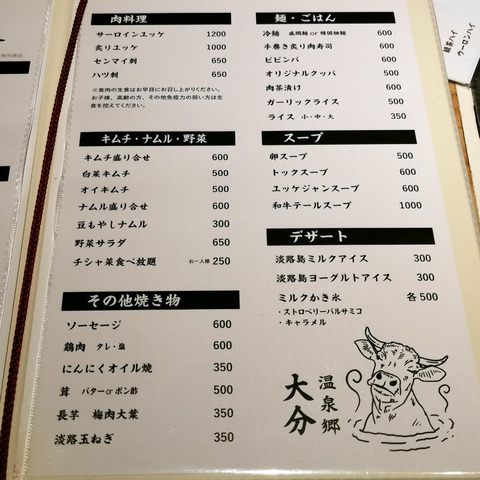 肉料理
サーロインユッケ 1200
炙りユッケ 1000
センマイ刺 650
ハツ刺 650
※食肉の生食はお早目にお召し上がりください。
お子様、高齢の方、その他免疫力の弱い方は生
食を控えてください。
キムチ・ナムル・野菜
キムチ盛り合せ 600
白菜キムチ 500
オイキムチ 500
ナムル盛り合せ 600
豆もやしナムル 300
野菜サラダ 650
チシャ菜食べ放題 お一人様 250
その他焼き物
ソーセージ 600
鶏肉 タレ・塩 600
にんにくオイル焼 350
茸 バターorポン酢 500
長芋 梅肉大葉 350
淡路玉ねぎ 350
麺・ごはん
冷麺 盛岡麺or韓国細麺 600
手巻き炙り肉寿司 600
ビビンバ 600
オリジナルクッパ 500
肉茶漬け 600
ガーリックライス 500
ライス 小・中・大 350
スープ
卵スープ 500
トックスープ 600
ユッケジャンスープ 600
和牛テールスープ 1000
デザート
淡路島ミルクアイス 300
淡路島ヨーグルトアイス 300
ミルクかき氷 各500
・ストロベリーバルサミコ
・キャラメル
温泉郷
大分
ウーロンハイ